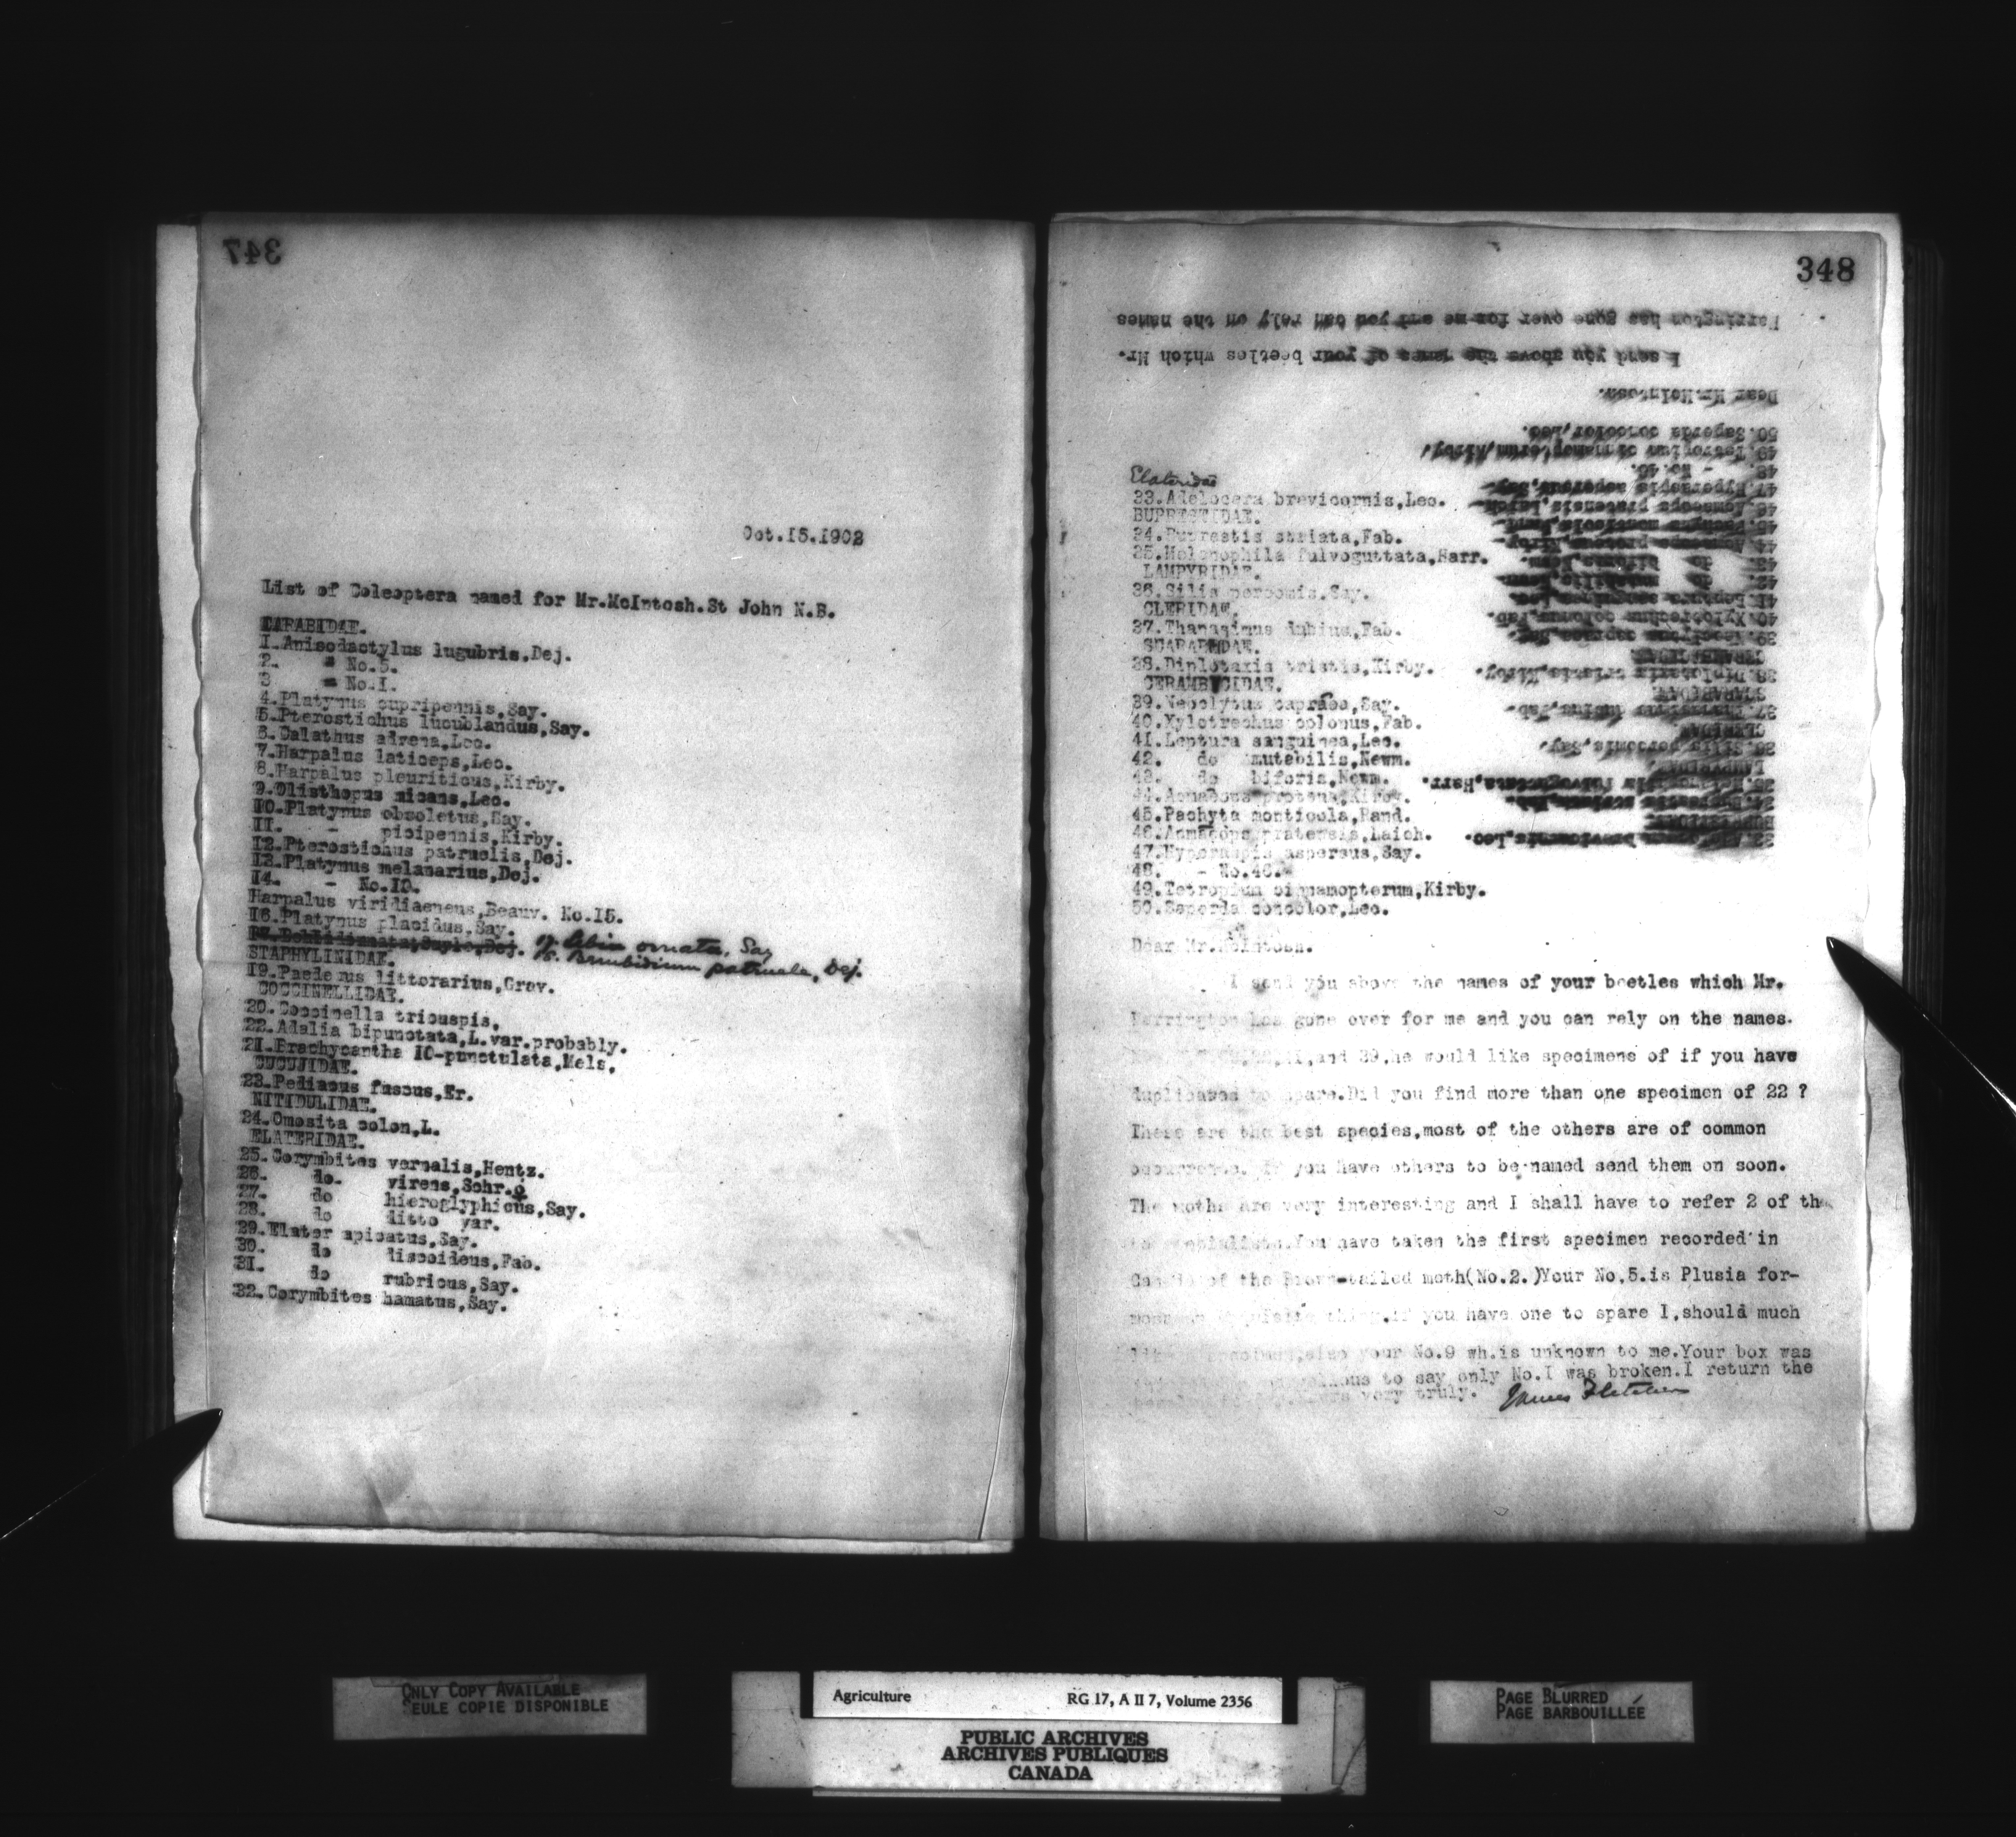 347
Oct.15.1902
List of Coleoptera named for Mr.McIntosh.St John N.B.
CARABIDAE.
1.Anisodactylus lugubris,Dej.
2. " No.5.
3 " No.1.
4.Platynus cupripennis,Say.
5.Pterostichus lucublandus,Say.
6.Calathus advena,Lec.
7.Harpalus laticeps,Lec.
8.Harpalus pleuriticus,Kirby.
9.Olisthopus micans,Lec.
10.Platynus obsoletus,Say.
11. - picipennis,Kirby.
12.Pterostichus patruelis,Dej.
13.Platynus melanarius,Dej.
14. - No.10.
Harpalus viridiaeneus,Beauv. No.15.
16.Platynus placidus,Say.
17. Lebia ornata, Say
18. Bembidium patruele, Dej.
STAPHYLINIDAE.
19.Paederus littorarius,Grav.
COCCINELLIDAE.
20.Coccinella tricuspis.
22.Adalia bipunctata,L.var.probably.
21.Brachycantha 10-punctulata,Mels.
CUCUJIDAE.
23.Pediacus fuscus,Er.
NITIDULIDAE.
24.Omosita colon,L.
ELATERIDAE.
25.Corymbites vernalis,Hentz.
26. do. virens,Schr.♀
27. do hieroglyphicus,Say.
28. do ditto var.
29.Elater apicatus,Say.
30. do discoideus,Fab.
31. do rubricus,Say.
32.Corymbites hamatus,Say.
348
Elateridae
33.Adelocera brevicornis,Lec.
BUPRESTIDAE.
34.Buprestis striata,Fab.
35.Melanophila fulvoguttata,Harr.
LAMPYRIDAE.
36.Silis percomis.Say.
CLERIDAE.
37.Thanasimus dubius,Fab.
SCARABEIDAE.
38.Diplotaxis tristis,Kirby.
CERAMBYCIDAE.
39.Neoclytus capraea,Say.
40.Xylotrechus colonus,Fab.
41.Leptura sanguinea,Lec.
42. do mutabilis,Newm.
43. do biforis,Newm.
44.Acmaeops proteus,Kirby.
45.Pachyta monticola,Rand.
46.Acmaeops pratensis,Laich.
47.Hyperaspis aspersus,Say.
48. - No.46.
49.Tetropium cinnamopterum,Kirby.
50.Saperda concolor,Lec.
Dear Mr.McIntosh.
I send you above the names of your beetles which Mr.
Harrington has gone over for me and you can rely on the names.
and 39,he would like specimens of if you have
duplicates to spare.Did you find more than one specimen of 22 ?
These are the best species,most of the others are of common
occurrence. If you have others to be named send them on soon.
The moths are very interesting and I shall have to refer 2 of the
to specialists.You have taken the first specimen recorded in
Canada of the Brown-tailed moth(No.2.)Your No.5.is Plusia for-
thing.If you have one to spare I,should much
like a specimen,also your No.9 wh.is unknown to me.Your box was
to say only No.I was broken.I return the
very truly. James Fletcher
ONLY COPY AVAILABLE
SEULE COPIE DISPONIBLE
Agriculture RG 17, A II 7, Volume 2356
PUBLIC ARCHIVES
ARCHIVES PUBLIQUES
CANADA
PAGE BLURRED
PAGE BARBOUILLÉE